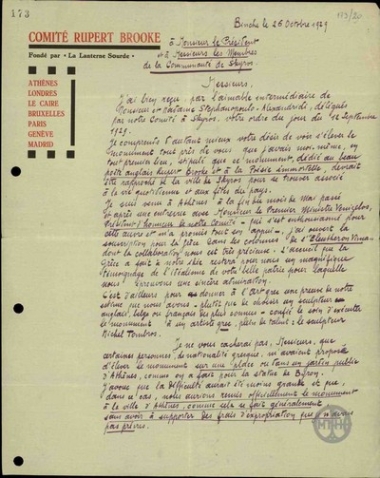 173
193/20
COMITÉ RUPERT BROOKE
Fondé par "La Lanterne Sourde"
ATHÈNES
LONDRES
LE CAIRE
BRUXELLES
PARIS
GENÈVE
MADRID
Binche le 26 Octobre 1929
à Monsieur le Président
& à Messieurs les Membres
de la Communauté de Skyros.
Messieurs,
J'ai bien reçu, par l'aimable intermédiaire de
Monsieur et Madame Stephanopoli-Alexandridi, délégués
par notre Comité à Skyros, votre ordre du jour du 1er Septembre
1929.
Je comprends d'autant mieux votre désir de voir s'élever le
monument tout près de vous que j'avais moi-même, en
tout premier lieu, stipulé que ce monument, dédié au beau
poète anglais Rupert Brooke et à la Poésie immortelle, devrait
être rapproché de la ville de Skyros pour se trouver associé
à la vie quotidienne et aux fêtes du pays.
Je suis venu à Athènes à la fin du mois de Mai passé
et après une entrevue avec Monsieur le Premier Ministre Venizelos,
Président d'honneur de notre Comité - qui s'est enthousiasmé pour
cette œuvre et m'a promis tout son appui -, j'ai ouvert la
souscription pour la Grèce dans les colonnes de "l'Eleftheron Vima"
dont la collaboration nous est très précieuse. L'accueil que la
Grèce a fait à notre idée restera pour nous un magnifique
témoignage de l'idéalisme de votre belle patrie pour laquelle
nous éprouvons une sincère admiration.
C'est d'ailleurs pour donner à l'art grec une preuve de notre
estime que nous avons - plutôt que de choisir un sculpteur
anglais, belge ou français des plus connus - confié le soin d'exécuter
le monument à un artiste grec, plein de talent: le sculpteur
Michel Tombros.
Je ne vous cacherai pas, Messieurs, que
certaines personnes, de nationalité grecque, m'avaient proposé
d'élever le monument sur une place ou dans un jardin public
d'Athènes, comme on a fait pour la statue de Byron.
J'avoue que la difficulté aurait été moins grande et que,
dans ce cas, nous aurions remis officiellement le monument
à la ville d'Athènes, comme cela se fait généralement
sans avoir à supporter des frais d'expropriation que nous n'avions
pas prévus.